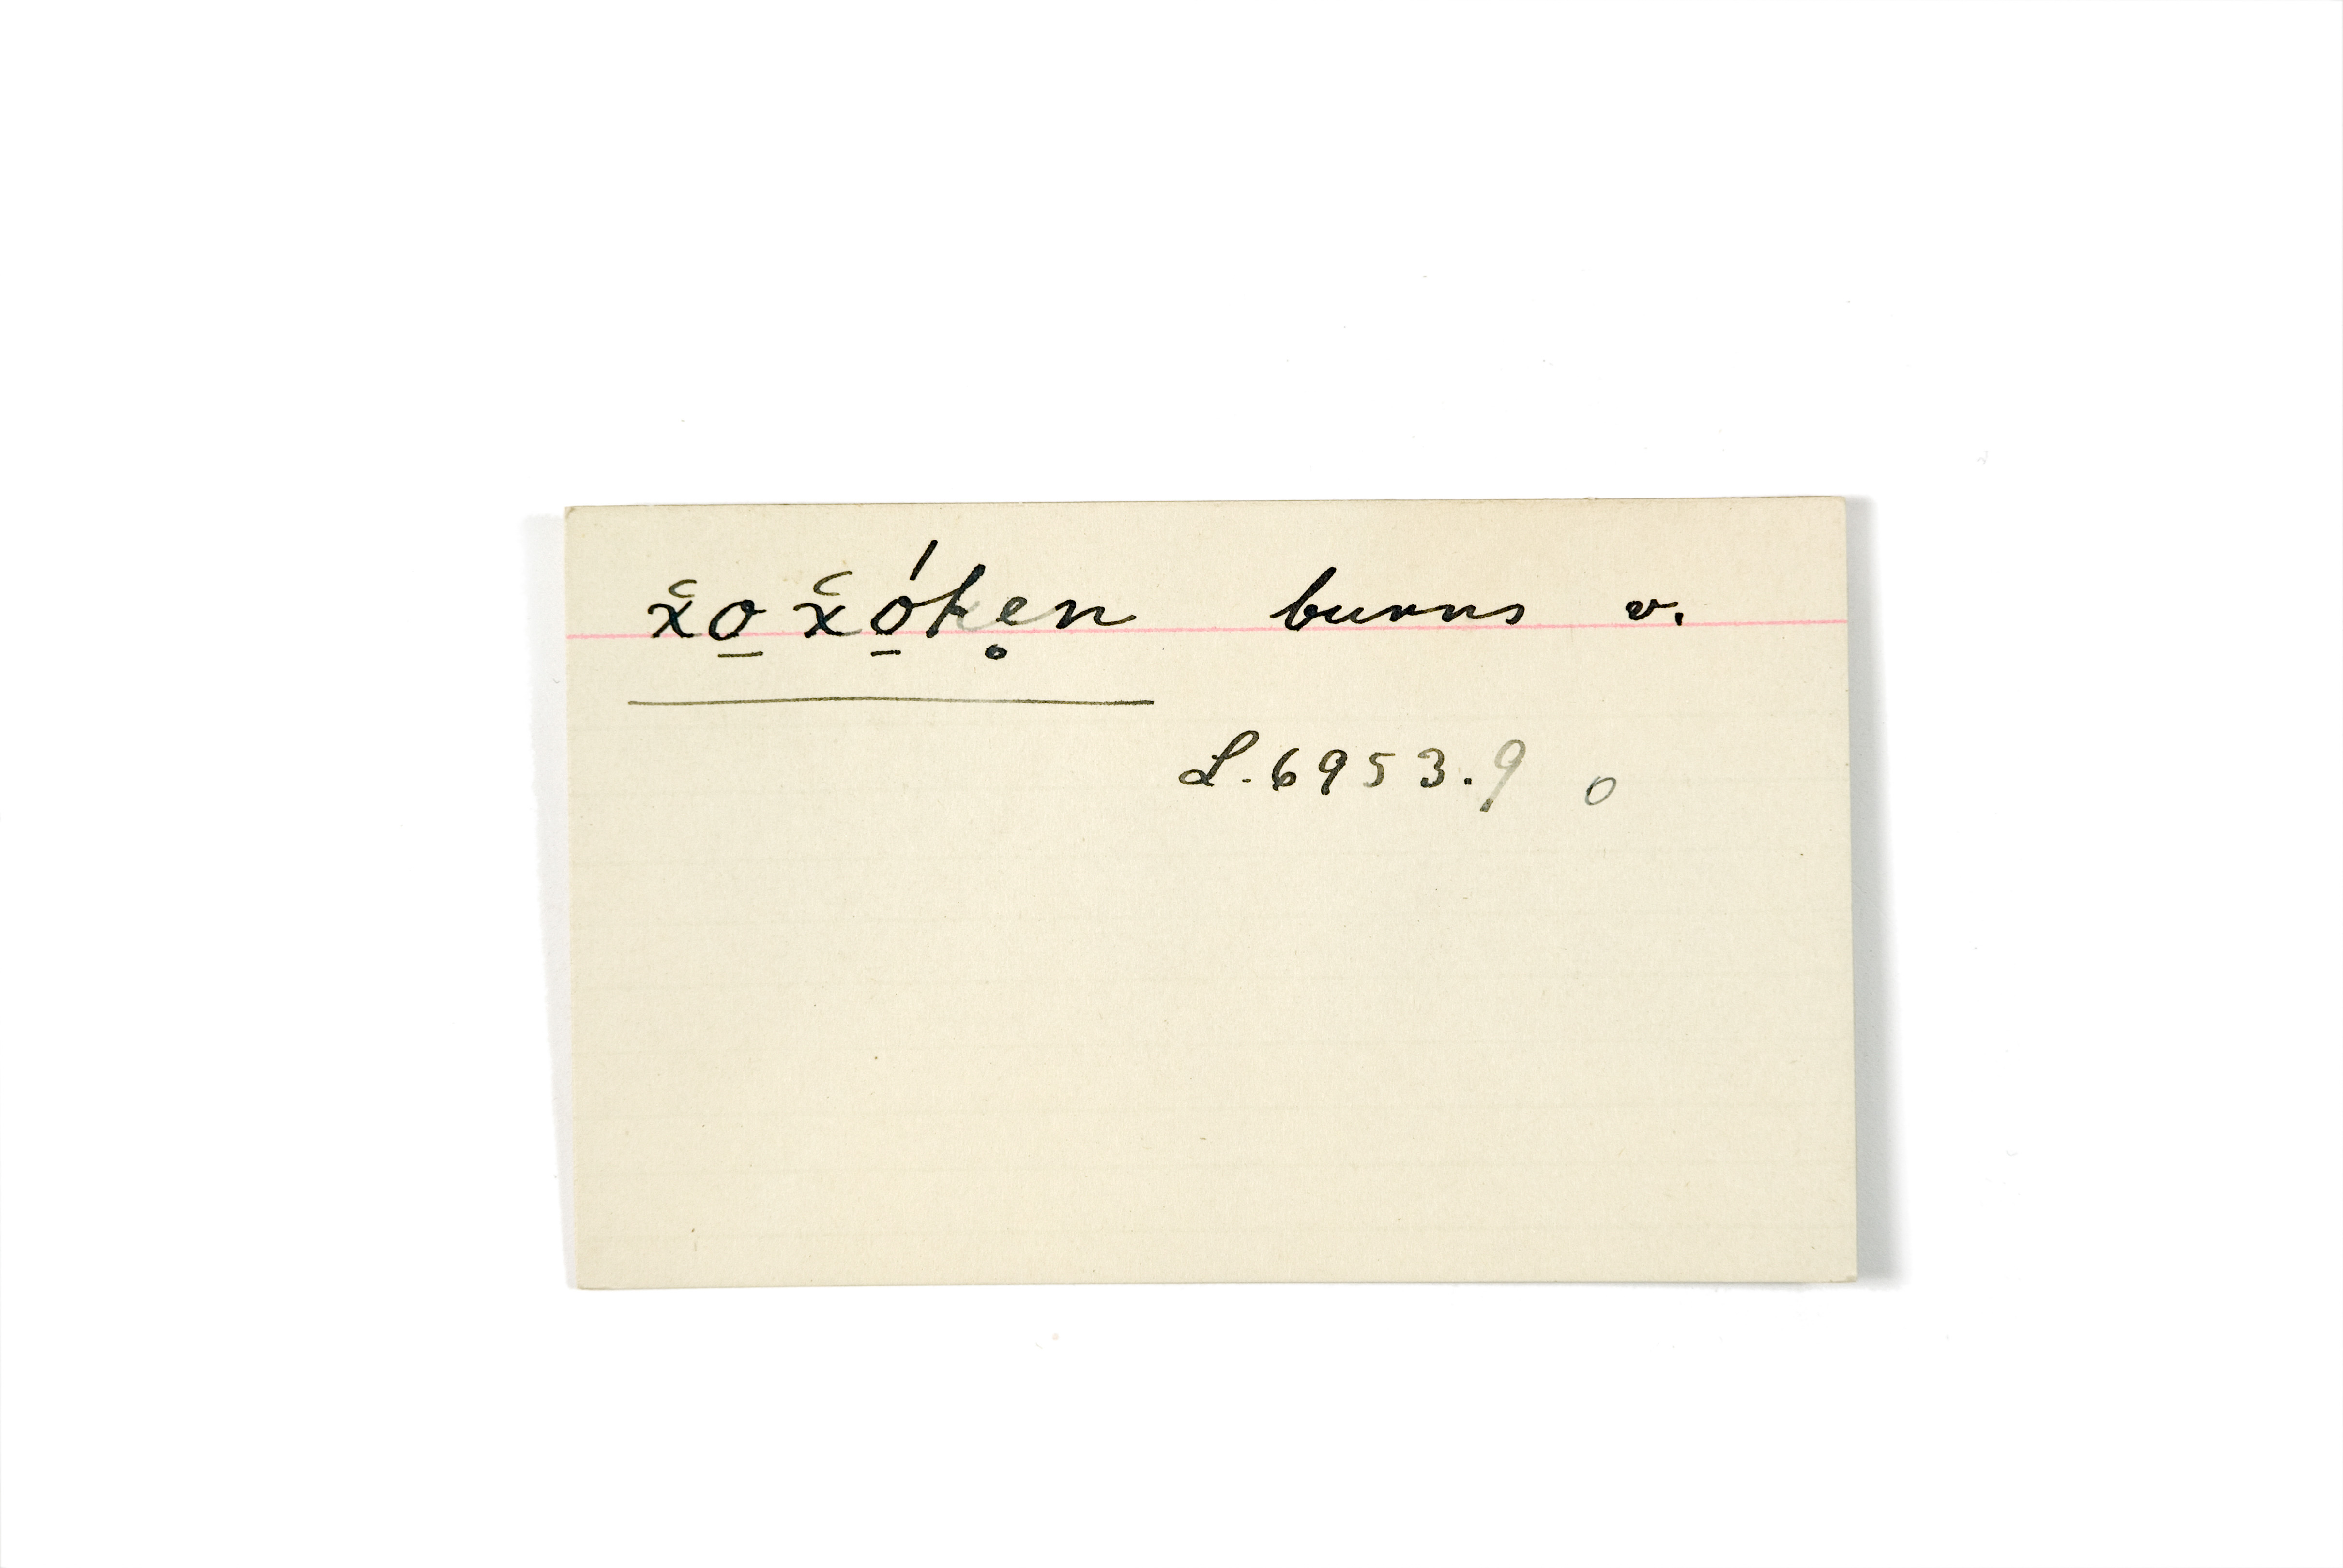 x̆o̱x̆ó̱ke̥n burns v.
L. 6953.9 o